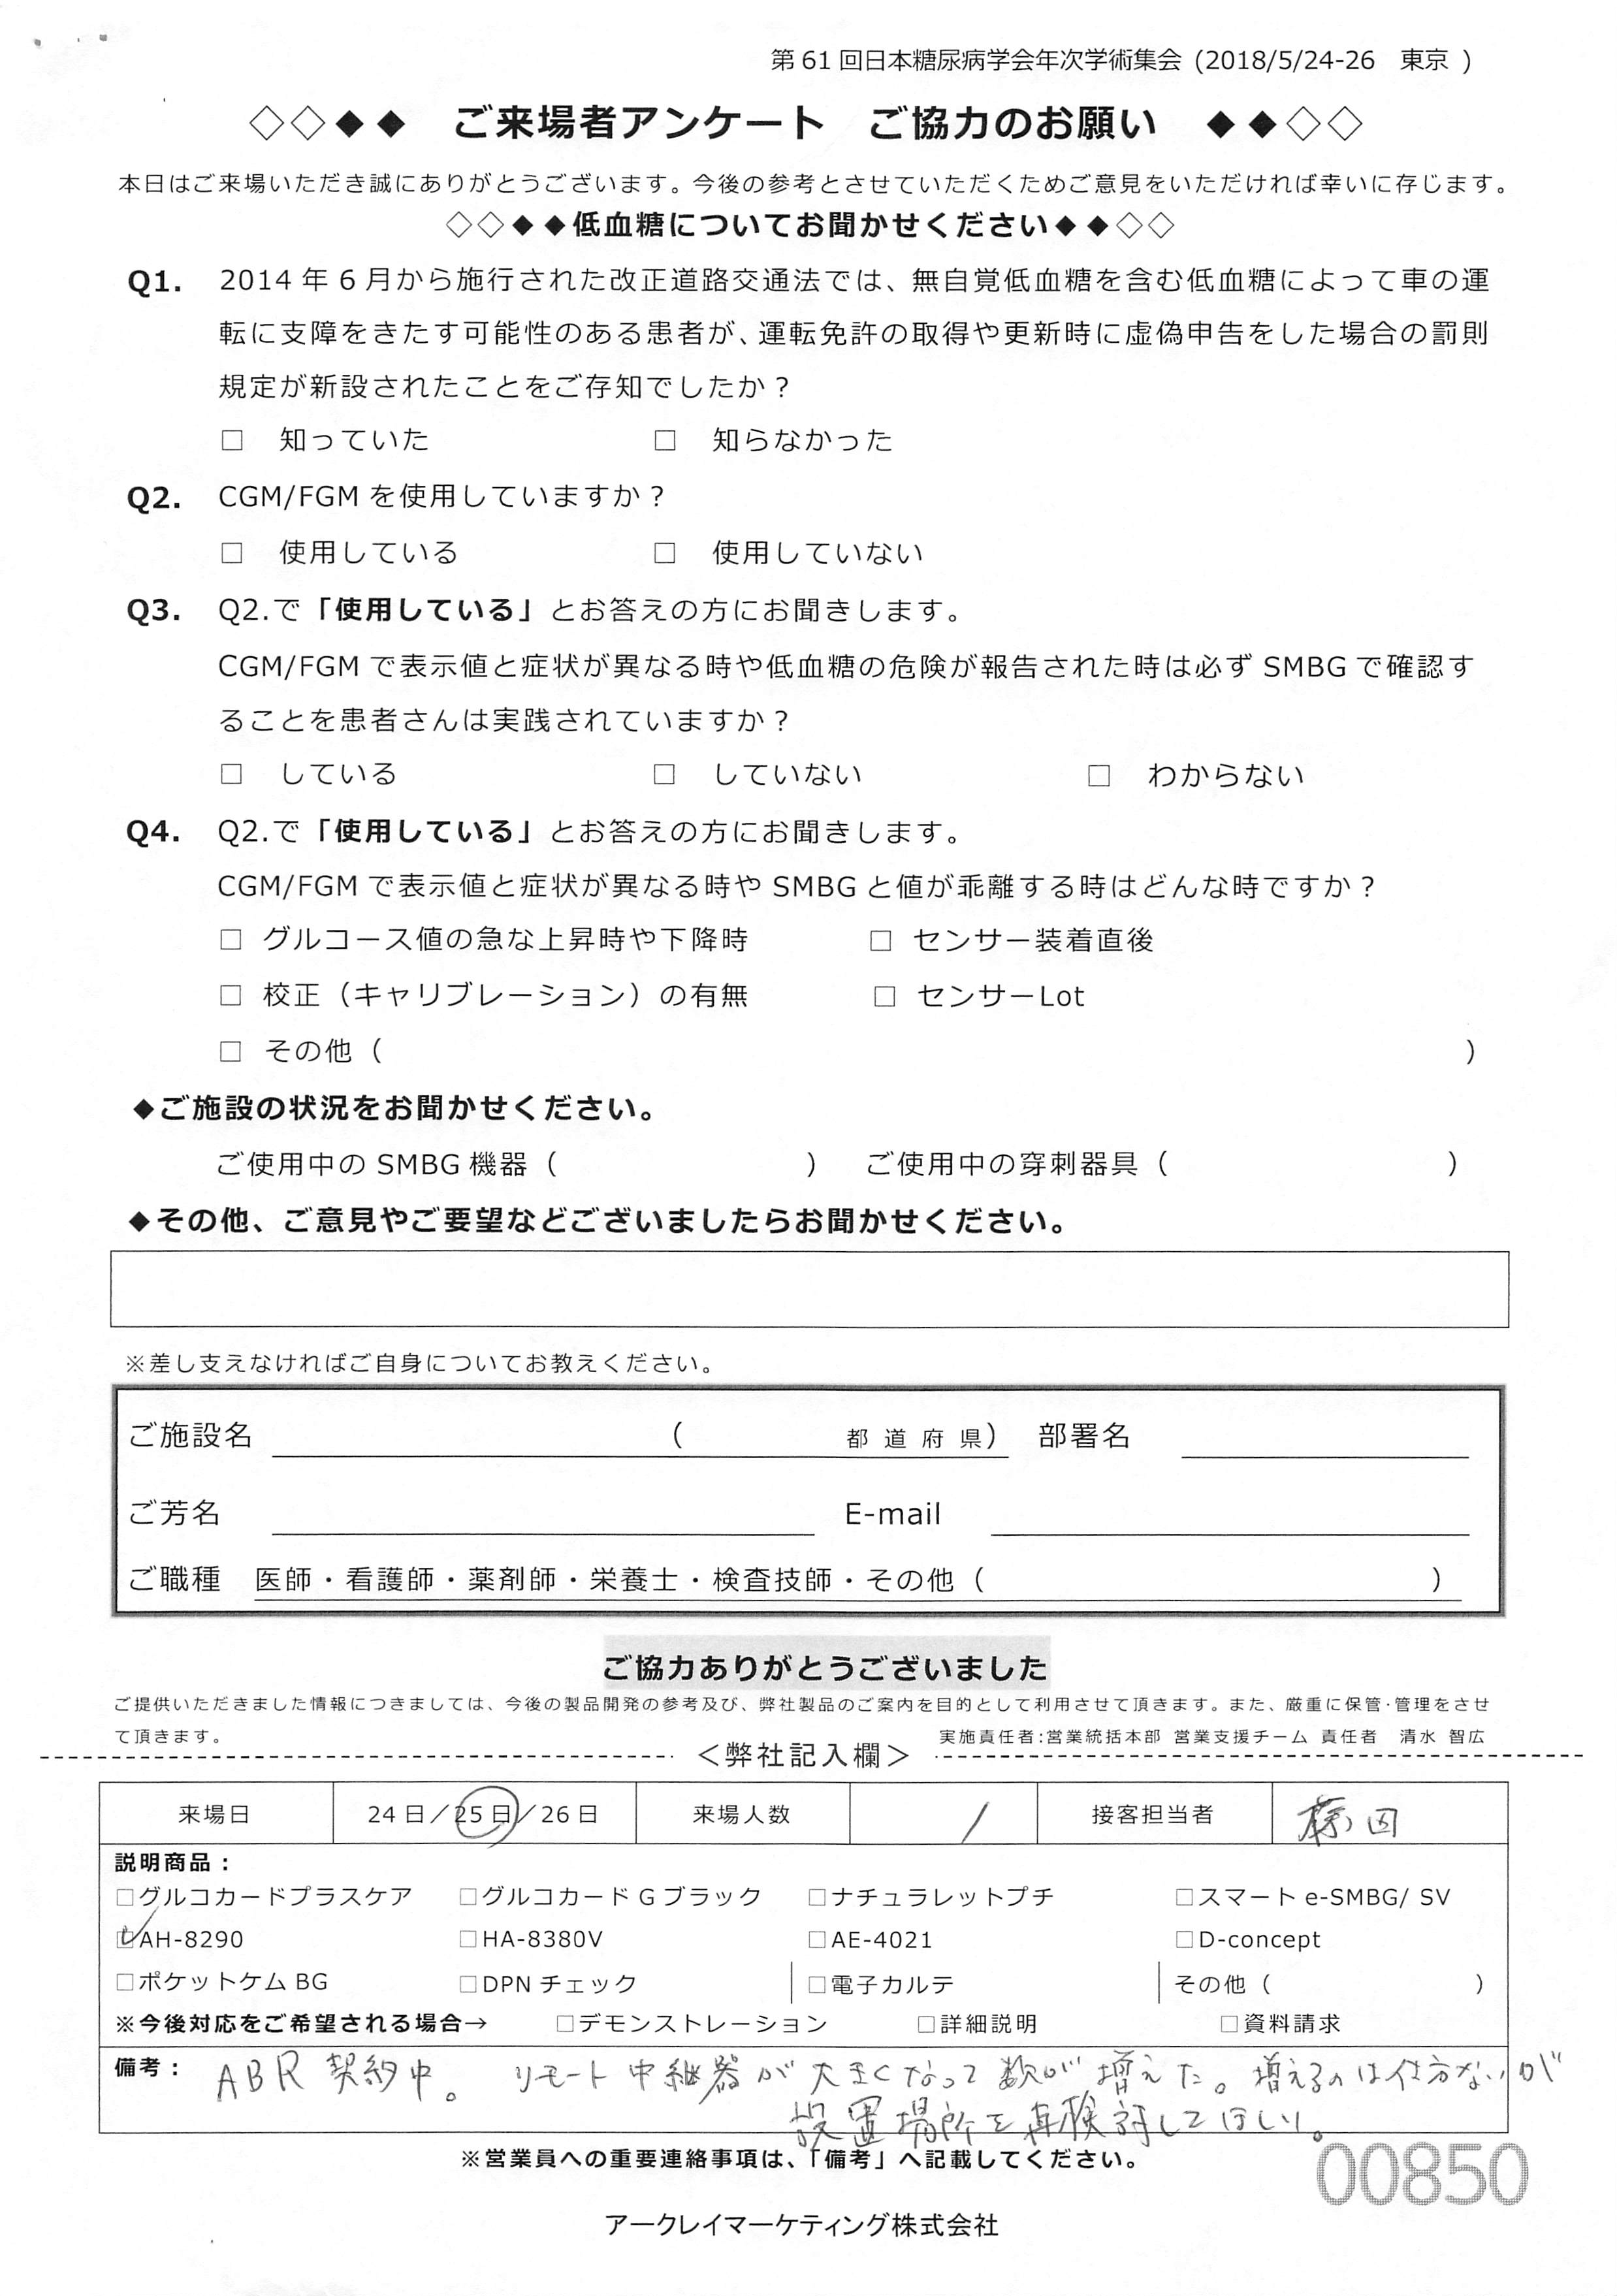 第61回日本糖尿病学会年次学術集会 (2018/5/24-26 東京 )
◇◇◆◆ ご来場者アンケート ご協力のお願い ◆◆◇◇
本日はご来場いただき誠にありがとうございます。今後の参考とさせていただくためご意見をいただければ幸いに存じます。
◇◇◆◆低血糖についてお聞かせください◆◆◇◇
Q1. 2014年6月から施行された改正道路交通法では、無自覚低血糖を含む低血糖によって車の運
転に支障をきたす可能性のある患者が、運転免許の取得や更新時に虚偽申告をした場合の罰則
規定が新設されたことをご存知でしたか？
□ 知っていた □ 知らなかった
Q2. CGM/FGMを使用していますか？
□ 使用している □ 使用していない
Q3. Q2.で「使用している」とお答えの方にお聞きします。
CGM/FGMで表示値と症状が異なる時や低血糖の危険が報告された時は必ずSMBGで確認す
ることを患者さんは実践されていますか？
□ している □ していない □ わからない
Q4. Q2.で「使用している」とお答えの方にお聞きします。
CGM/FGMで表示値と症状が異なる時やSMBGと値が乖離する時はどんな時ですか？
□ グルコース値の急な上昇時や下降時 □ センサー装着直後
□ 校正（キャリブレーション）の有無 □ センサーLot
□ その他（ ）
◆ご施設の状況をお聞かせください。
ご使用中のSMBG機器（ ） ご使用中の穿刺器具（ ）
◆その他、ご意見やご要望などございましたらお聞かせください。
※差し支えなければご自身についてお教えください。
ご施設名 （ 都道府県） 部署名
ご芳名 E-mail
ご職種 医師・看護師・薬剤師・栄養士・検査技師・その他（ ）
ご協力ありがとうございました
ご提供いただきました情報につきましては、今後の製品開発の参考及び、弊社製品のご案内を目的として利用させて頂きます。また、厳重に保管・管理をさせ
て頂きます。 実施責任者:営業統括本部 営業支援チーム 責任者 清水 智広
＜弊社記入欄＞
来場日 24日／25日／26日 来場人数 1 接客担当者
説明商品：
□グルコカードプラスケア □グルコカードGブラック □ナチュラレットプチ □スマートe-SMBG/ SV
☑AH-8290 □HA-8380V □AE-4021 □D-concept
□ポケットケムBG □DPNチェック □電子カルテ その他（ ）
※今後対応をご希望される場合→ □デモンストレーション □詳細説明 □資料請求
備考： ABR 契約中。 リモート中継器が大きくなって数が増えた。増えるのは仕方ないが
設置場所を再検討してほしい。
※営業員への重要連絡事項は、「備考」へ記載してください。
00850
アークレイマーケティング株式会社